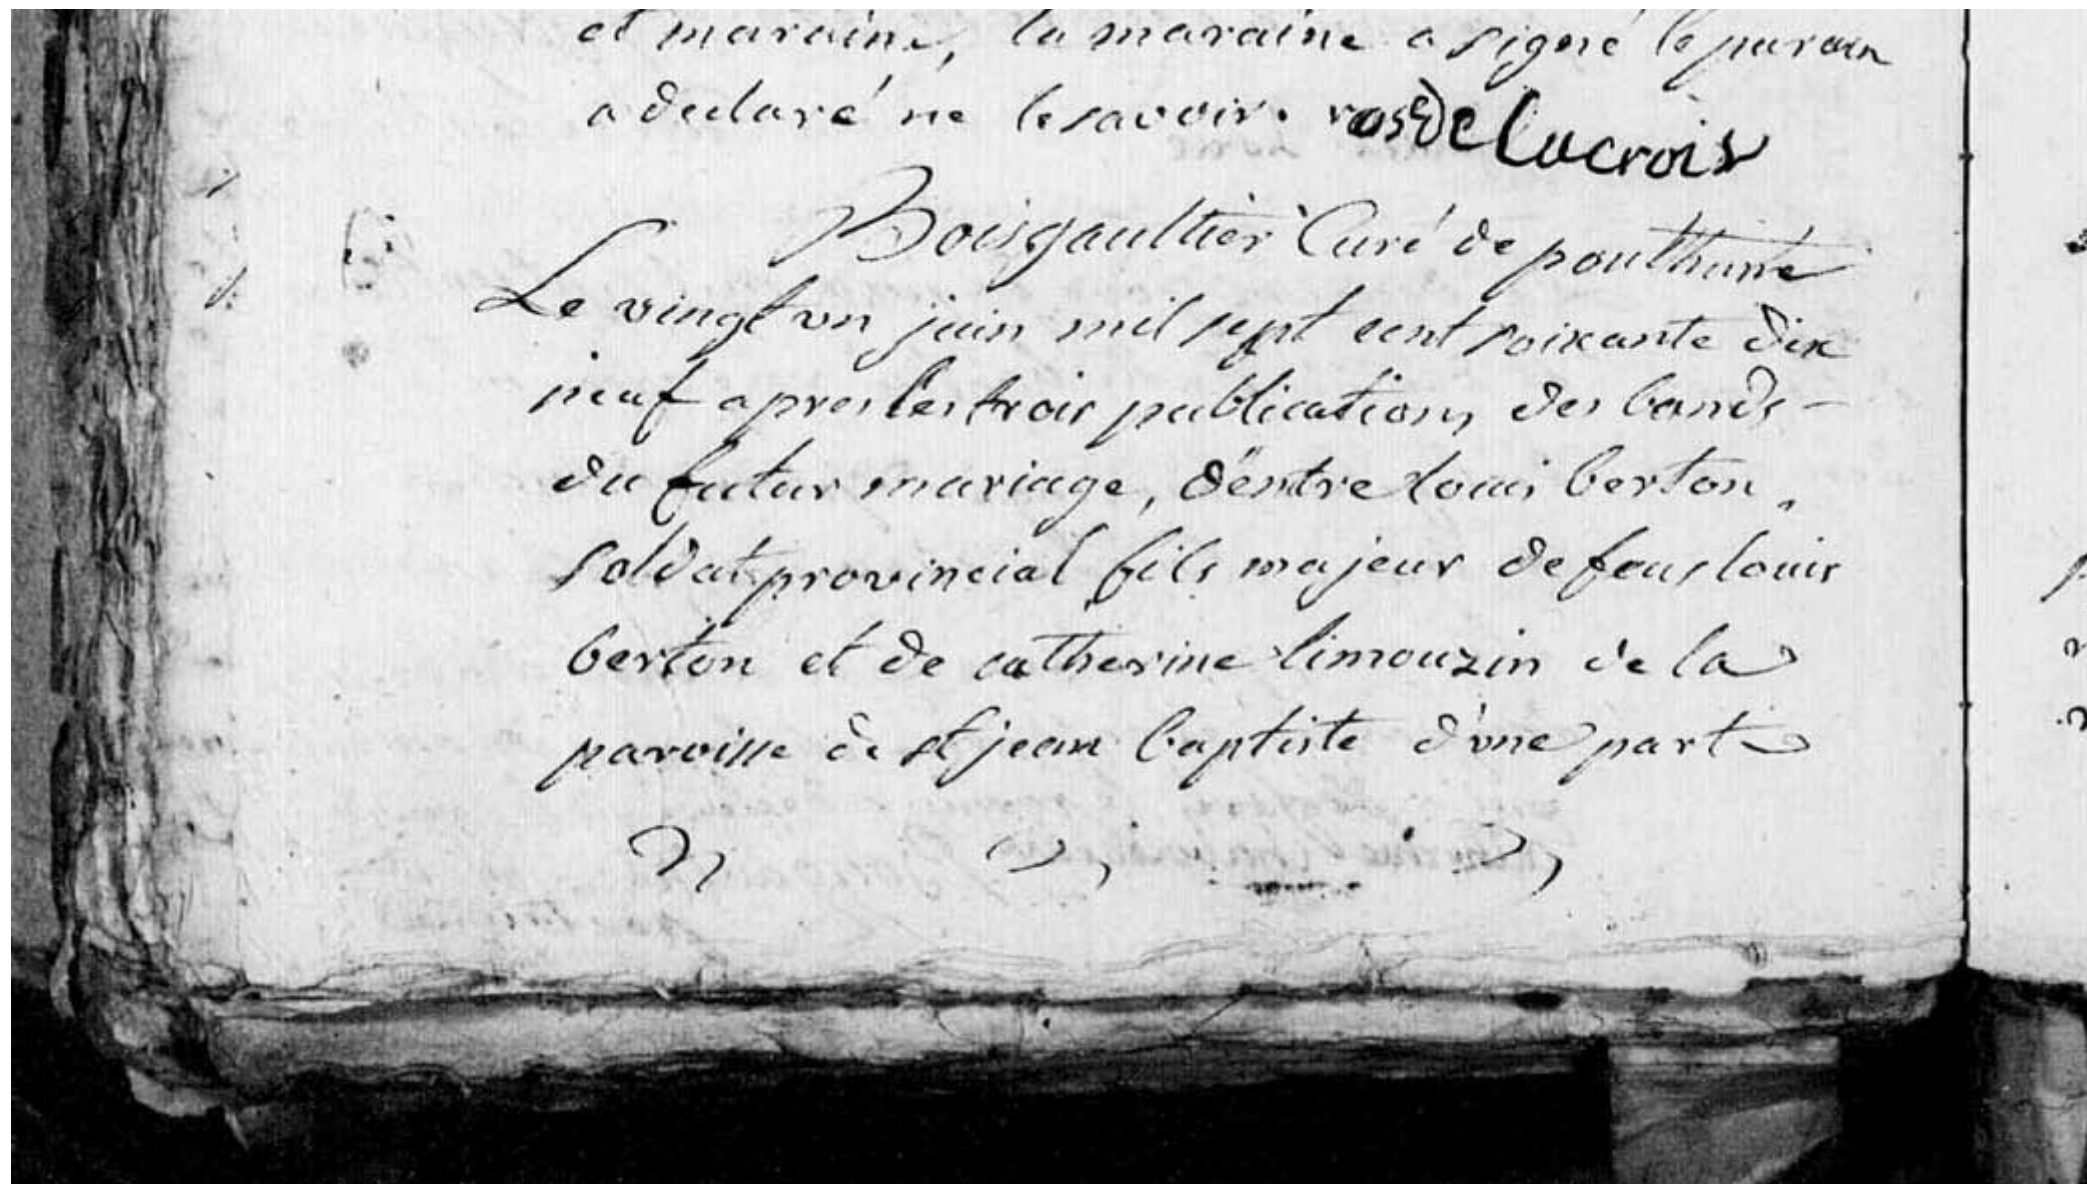 et maraine, la maraine a signé le parain
a declaré ne le savoir. rose De lacroix
Boisgaultier Curé de pouthumé
Le vingt un juin mil sept cent soixante dix
neuf apres les trois publications des bands -
du futur mariage, d'entre louis berton,
soldat provincial fils majeur de feus louis
berton et de catherine limouzin de la
paroisse de st jean baptiste d'une part